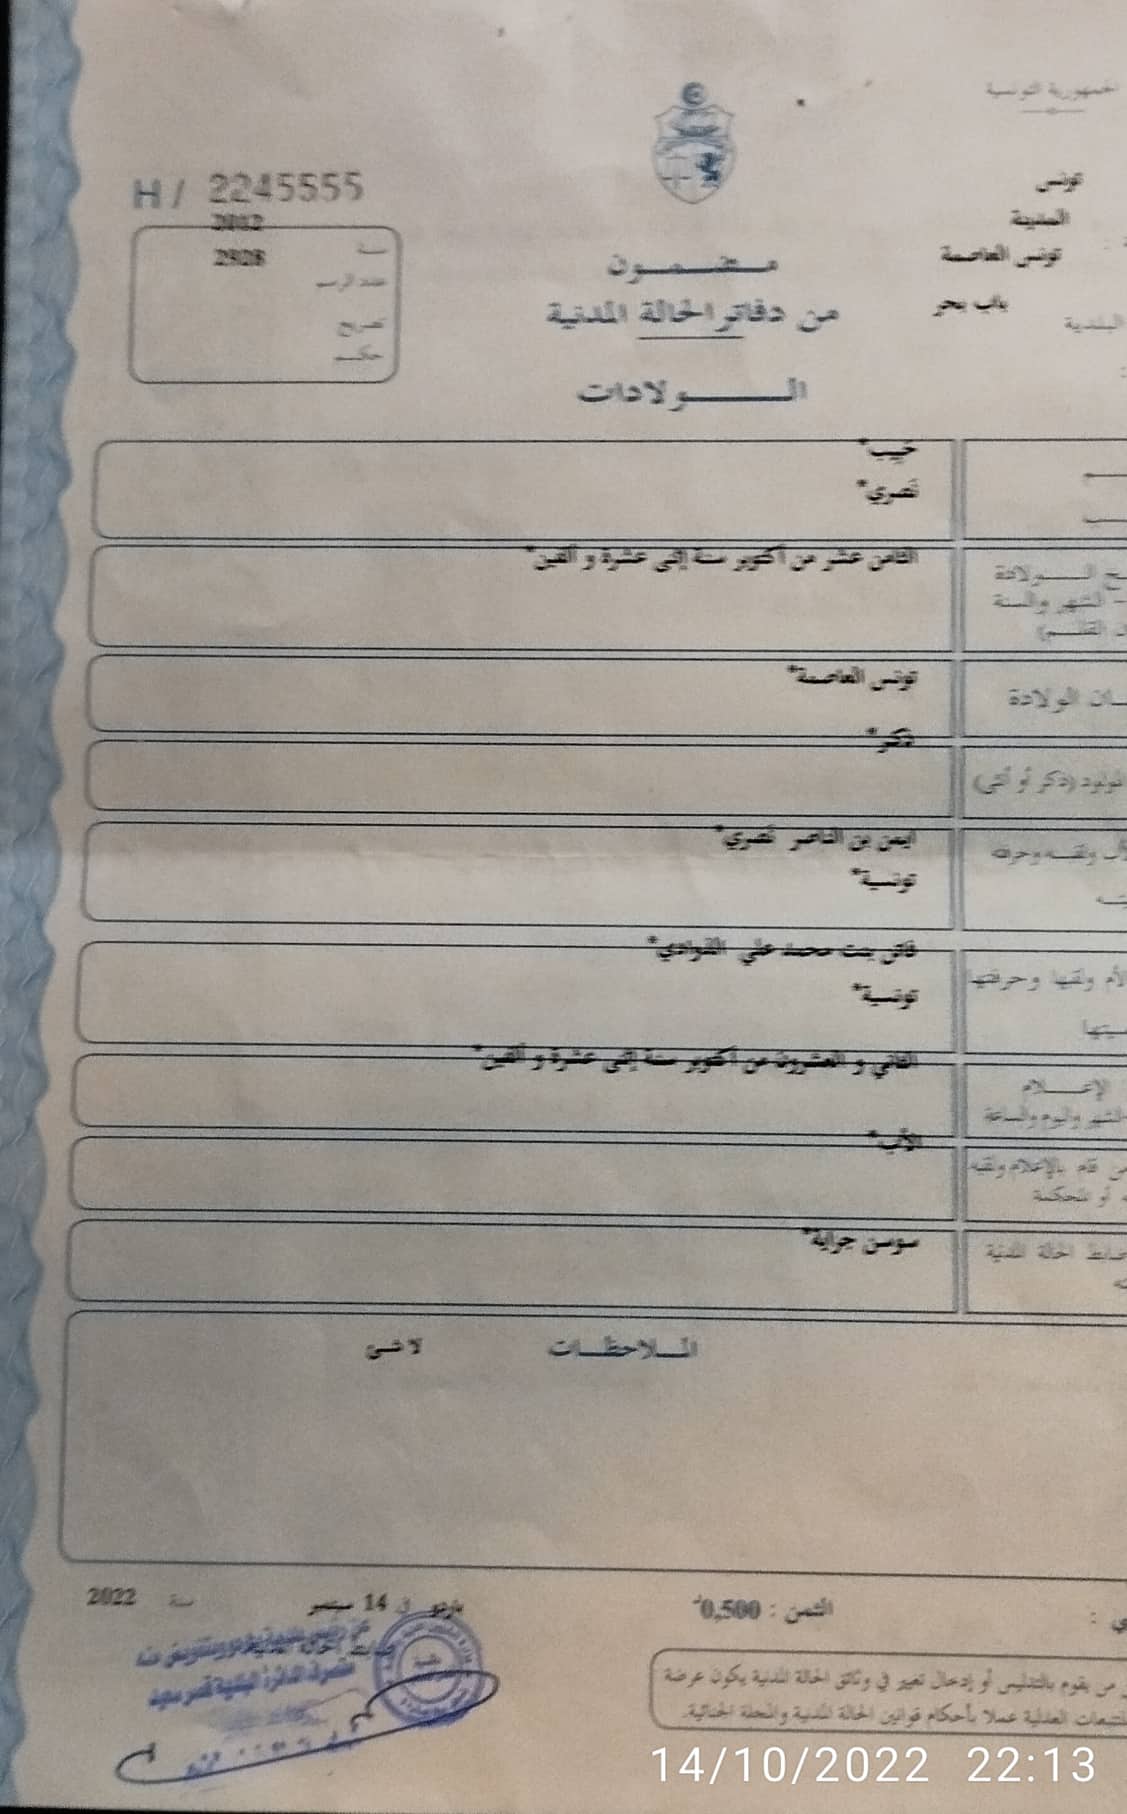 الجمهورية التونسية
تونس
المدينة
تونس العاصمة
باب بحر
البلدية
H / 2245555
2012
سنة
2928
عدد الرسم
تصريح
حكم
مضمون
من دفاتر الحالة المدنية
الولادات
نصري*
الثامن عشر من أكتوبر سنة إثني عشرة و ألفين*
الولادة
الشهر والسنة
القلم)
تونس العاصمة*
الولادة
ذكر*
(ذكر أو أنثى)
ايمن بن الناصر نصري*
ولقبه وحرفته
تونسية*
فاتن بنت محمد علي القوادي*
الأم ولقبها وحرفتها
تونسية*
الثاني و العشرون من أكتوبر سنة إثني عشرة و ألفين*
الإعلام
والشهر واليوم والساعة
الأب*
من قام بالإعلام ولقبه
أو المحكمة
سوسن جراية*
ضابط الحالة المدنية
الملاحظات لا شئ
الثمن : 0,500د
باردو في 14 سبتمبر سنة 2022
من يقوم بالتدليس أو إدخال تغيير في وثائق الحالة المدنية يكون عرضة
للتتبعات العدلية عملا بأحكام قوانين الحالة المدنية والمجلة الجنائية.
14/10/2022 22:13